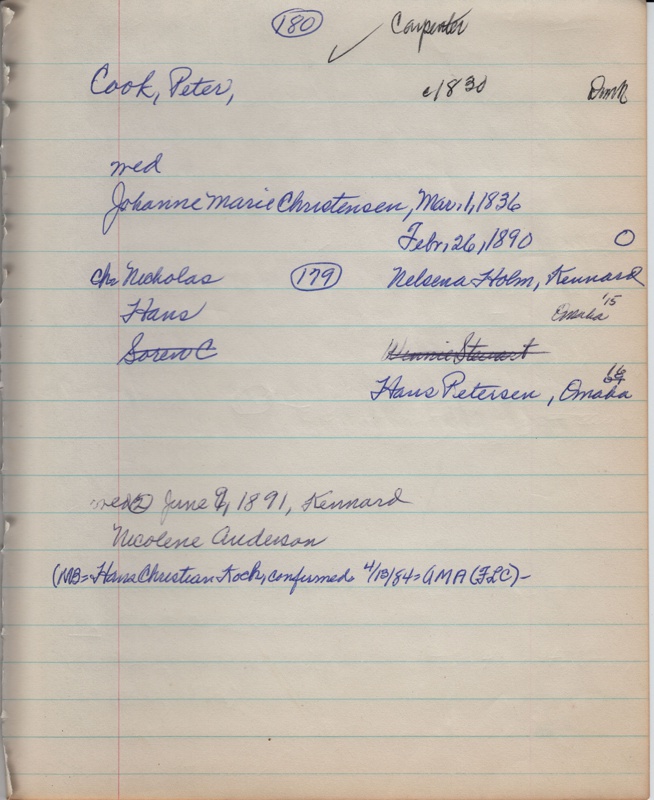 180 Carpenter
Cook, Peter, c/1830 Dmk
med
Johanne Marie Christensen, Mar. 1, 1836
Febr. 26, 1890 O
ch. Nicholas 179 Nelsena Holm, Kennard
Hans Omaha '15
Soren C Winnie Stewart
Hans Petersen, Omaha
med 2 June 9, 1891, Kennard
Nicolene Anderson
(MB = Hans Christian Koch, confirmed 4/13/84 = AMA (FLC) -